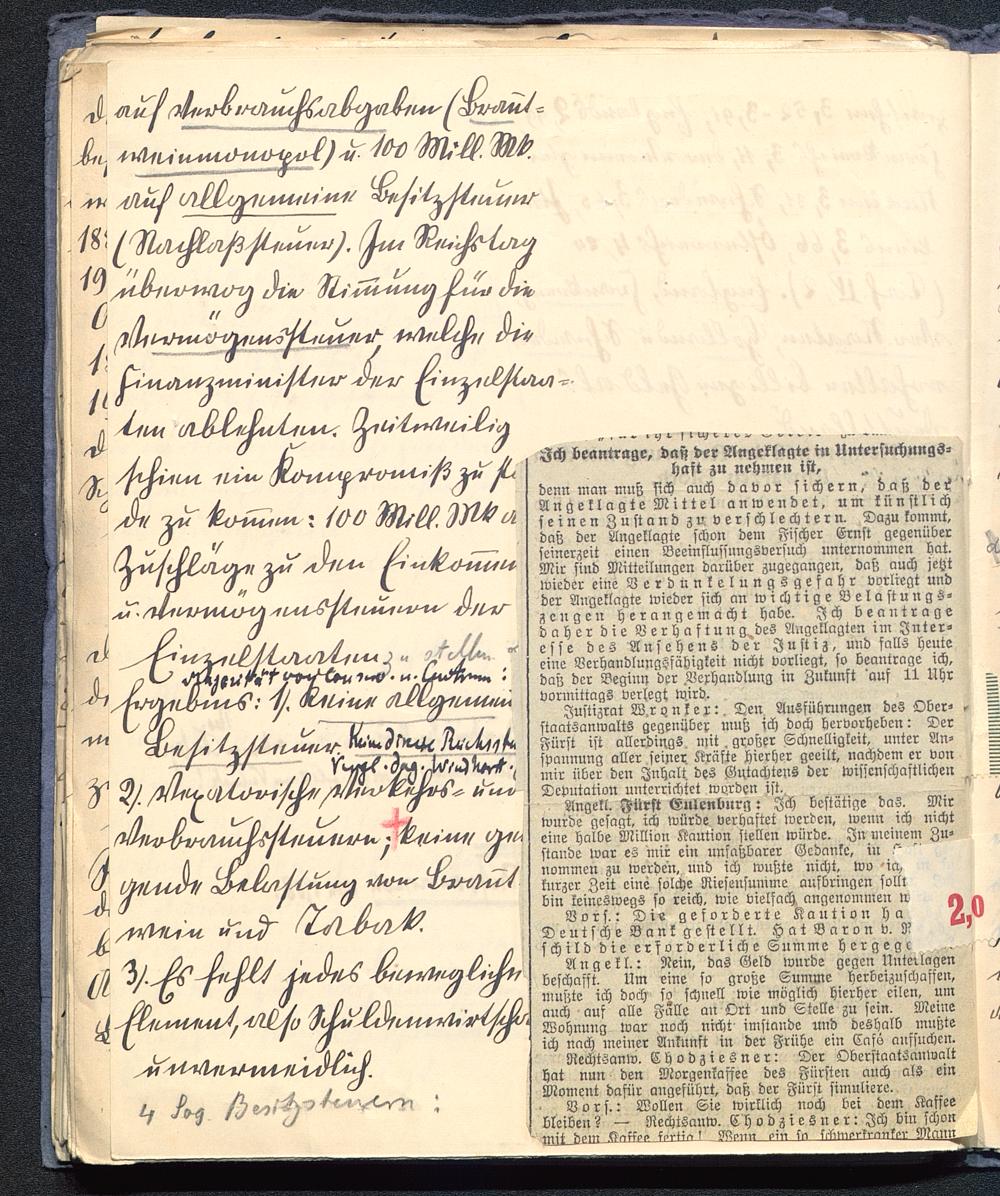 auf Verbrauchsabgaben (Brannt-
weinmonopol) u. 100 Mill. Mk.
auf allgemeine Besitzsteuer
(Nachlaßsteuer). Im Reichstag
überwog die Stimmung für die
Vermögenssteuer, welche die
Finanzminister der Einzelstaa-
ten ablehnten. Zeitweilig
schien ein Kompromiß zu
de zu kommen: 100 Mill. Mk
Zuschläge zu den Einkomm
u. Vermögenssteuern der
Einzelstaaten
Ergebnis: 1). Keine allgemein
Besitzsteuer. Keine direkte Reichs
2). Vexatorische Verkehrs- und
Verbrauchssteuern; keine
gende Belastung von Brannt
wein und Tabak.
3). Es fehlt jedes bewegliche
Element, also Schuldenwirtsch
unvermeidlich.
4 Sog. Besitzsteuern:
Ich beantrage, daß der Angeklagte in Untersuchungs-
haft zu nehmen ist,
denn man muß sich auch davor sichern, daß der
Angeklagte Mittel anwendet, um künstlich
seinen Zustand zu verschlechtern. Dazu kommt,
daß der Angeklagte schon dem Fischer Ernst gegenüber
seinerzeit einen Beeinflussungsversuch unternommen hat.
Mir sind Mitteilungen darüber zugegangen, daß auch jetzt
wieder eine Verdunkelungsgefahr vorliegt und
der Angeklagte wieder sich an wichtige Belastungs-
zeugen herangemacht habe. Ich beantrage
daher die Verhaftung des Angeklagten im Inter-
esse des Ansehens der Justiz, und falls heute
eine Verhandlungsfähigkeit nicht vorliegt, so beantrage ich,
daß der Beginn der Verhandlung in Zukunft auf 11 Uhr
vormittags verlegt wird.
Justizrat Wronker: Den Ausführungen des Ober-
staatsanwalts gegenüber muß ich doch hervorheben: Der
Fürst ist allerdings mit großer Schnelligkeit, unter An-
spannung aller seiner Kräfte hierher geeilt, nachdem er von
mir über den Inhalt des Gutachtens der wissenschaftlichen
Deputation unterrichtet worden ist.
Angekl. Fürst Eulenburg: Ich bestätige das. Mir
wurde gesagt, ich würde verhaftet werden, wenn ich nicht
eine halbe Million Kaution stellen würde. In meinem Zu-
stande war es mir ein unfaßbarer Gedanke, in
nommen zu werden, und ich wußte nicht, wo ich
kurzer Zeit eine solche Riesensumme aufbringen sollt
bin keineswegs so reich, wie vielfach angenommen w
Vors.: Die geforderte Kaution ha
Deutsche Bank gestellt. Hat Baron v. R
schild die erforderliche Summe hergege
Angekl.: Nein, das Geld wurde gegen Unterlagen
beschafft. Um eine so große Summe herbeizuschaffen,
mußte ich doch so schnell wie möglich hierher eilen, um
auch auf alle Fälle an Ort und Stelle zu sein. Meine
Wohnung war noch nicht imstande und deshalb mußte
ich nach meiner Ankunft in der Frühe ein Café aufsuchen.
Rechtsanw. Chodziesner: Der Oberstaatsanwalt
hat nun den Morgenkaffee des Fürsten auch als ein
Moment dafür angeführt, daß der Fürst simuliere.
Vors.: Wollen Sie wirklich noch bei dem Kaffee
bleiben? — Rechtsanw. Chodziesner: Ich bin schon
mit dem Kaffee fertig! Wenn ein so schwerkranker Mann
2,0